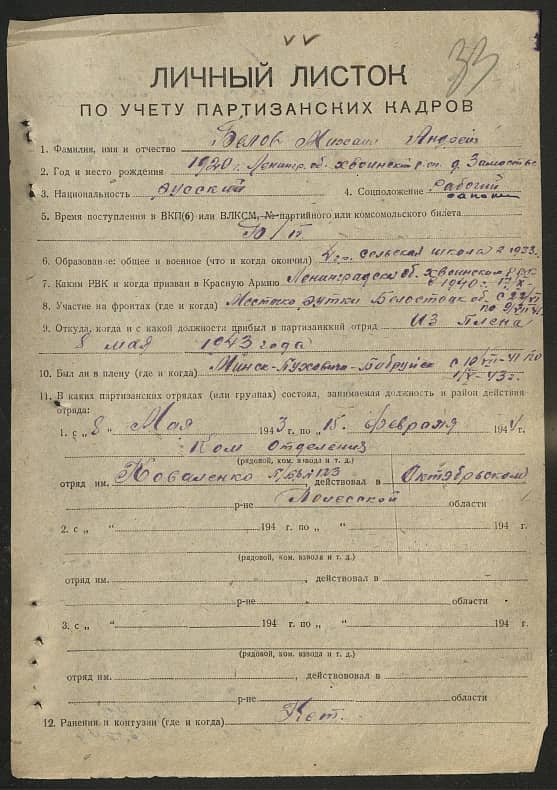 33
ЛИЧНЫЙ ЛИСТОК
ПО УЧЕТУ ПАРТИЗАНСКИХ КАДРОВ
1. Фамилия, имя и отчество Белов Михаил Андрей
2. Год и место рождения 1920 г. Ленингр. об. Хвоинский р-он д. Замостье
3. Национальность русский 4. Соцположение рабочий
5. Время поступления в ВКП(б) или ВЛКСМ, № партийного или комсомольского билета
б/п
6. Образование: общее и военное (что и когда окончил) сельская школа 1933.
7. Каким РВК и когда призван в Красную Армию Ленинградская об. Хвоинском РВК
в 1940 г.
8. Участие на фронтах (где и когда) Местечко Рутки Белостоцк об. с 22/VI
по
9. Откуда, когда и с какой должности прибыл в партизанский отряд Из плена
8 мая 1943 года
10. Был ли в плену (где и когда) Минск-Пуховичи-Бобруйск с 10/VII-41 по
1/V-43 г.
11. В каких партизанских отрядах (или группах) состоял, занимаемая должность и район действия
отряда:
1. с „8 Мая 1943 г. по „15 Февраля 1944 г.
Ком отделения
(рядовой, ком. взвода и т. д.)
отряд им. Коваленко п/бр № 123, действовал в Октябрьском
р-не Полесской области
2. с „ “ 194 г. по „ “ 194 г.
(рядовой, ком. взвода и т. д.)
отряд им. , действовал в
р-не области
3. с „ “ 194 г. по „ “ 194 г.
(рядовой, ком. взвода и т. д.)
отряд им. , действовал в
р-не области
12. Ранения и контузии (где и когда) Нет.